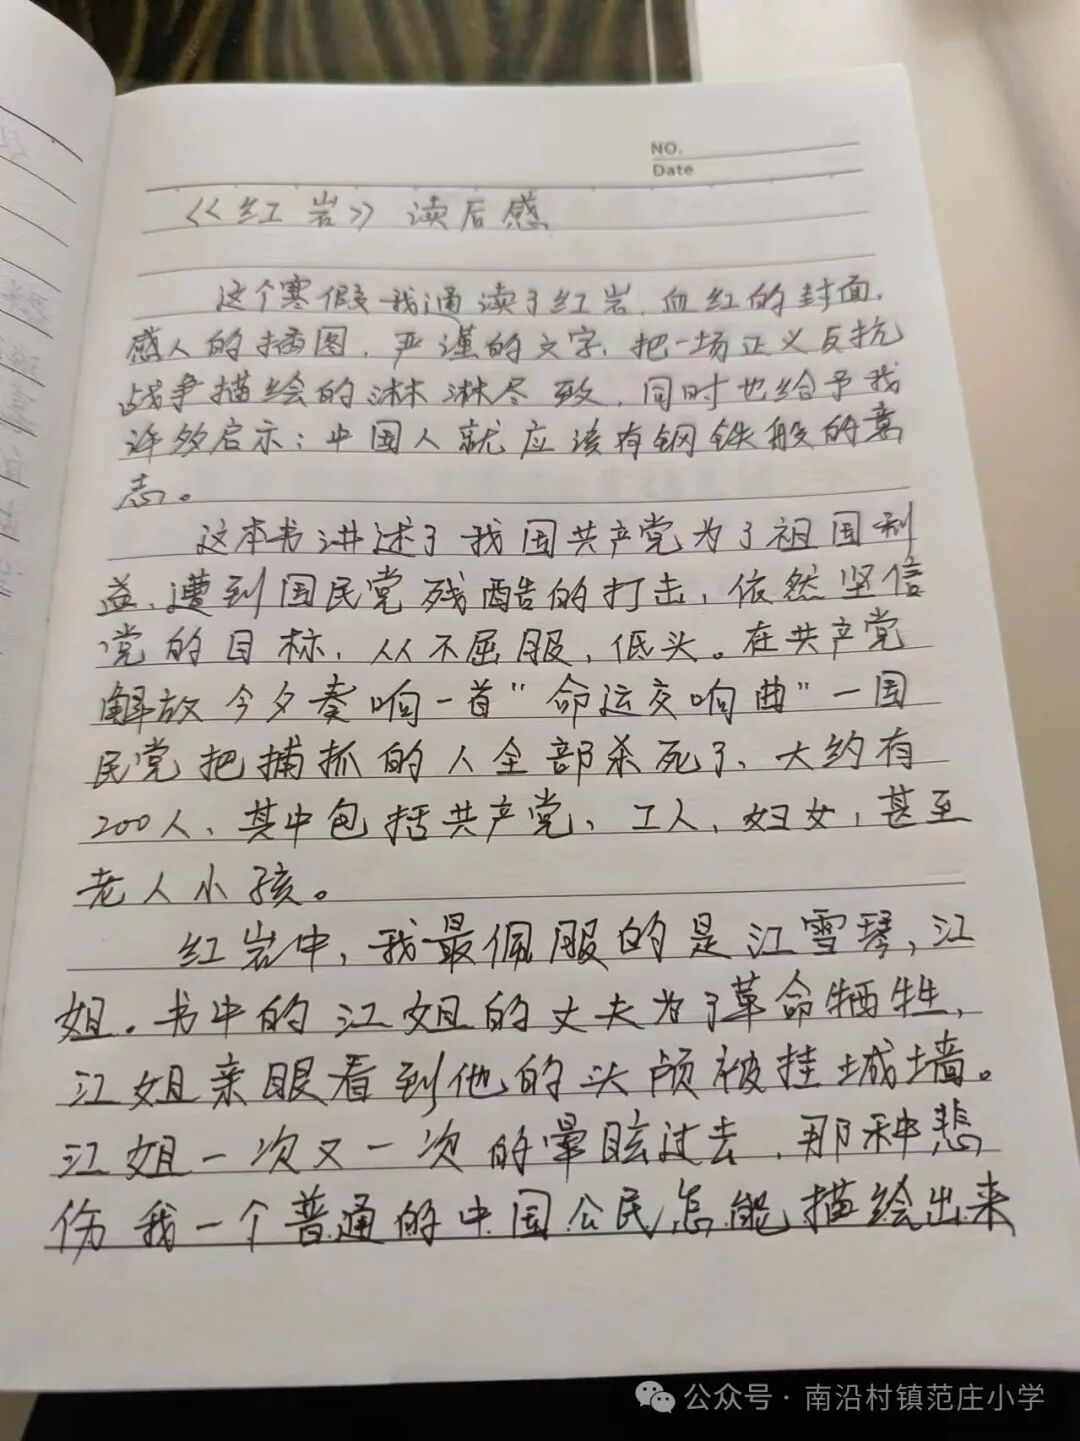 NO.
Date
《红岩》读后感
这个寒假我通读了红岩，血红的封面，
感人的插图，严谨的文字，把一场正义反抗
战争描绘的淋淋尽致，同时也给予我
许多启示：中国人就应该有钢铁般的意
志。
这本书讲述了我国共产党为了祖国利
益、遭到国民党残酷的打击，依然坚信
党的目标，从不屈服，低头。在共产党
解放今夕奏响一首"命运交响曲"一国
民党把捕抓的人全部杀死了、大约有
200人、其中包括共产党、工人，妇女，甚至
老人小孩。
红岩中，我最佩服的是江雪琴，江
姐。书中的江姐的丈夫为了革命牺牲，
江姐亲眼看到他的头颅被挂城墙。
江姐一次又一次的晕眩过去，那种悲
伤我一个普通的中国公民怎能描绘出来
公众号·南沿村镇范庄小学